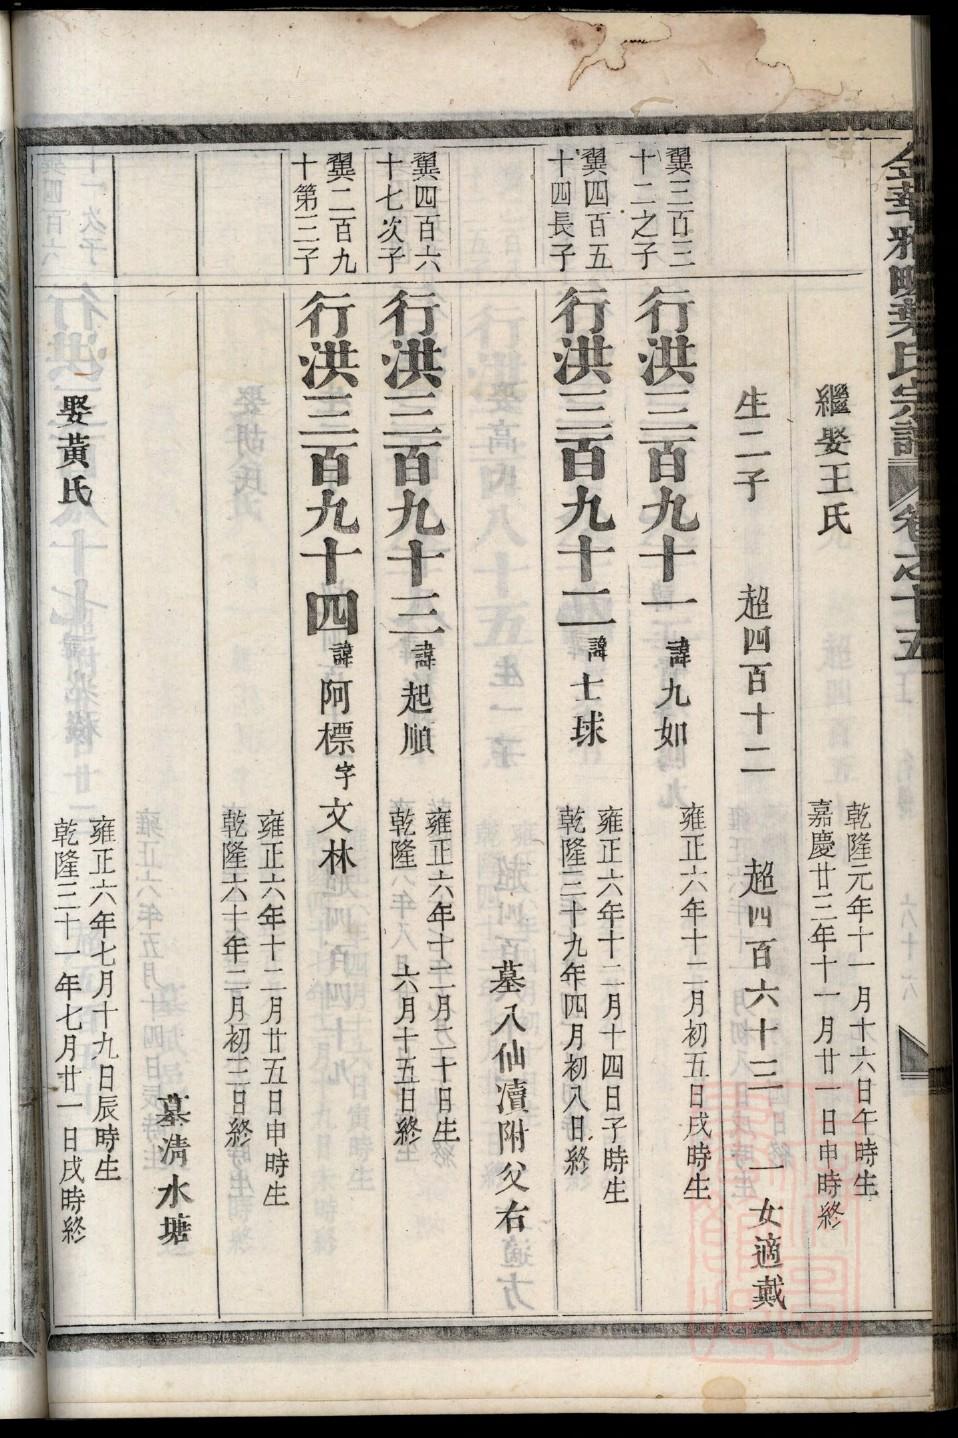 金華雅畈葉氏宗譜 卷之十五
繼娶王氏 乾隆元年十一月十六日午時生
嘉慶廿三年十一月廿一日申時終
生二子 超四百十二 超四百六十三 一女適戴
翼三百三
十二之子
行洪三百九十一 諱九如 雍正六年十二月初五日戌時生
翼四百五
十四長子
行洪三百九十二 諱士球 雍正六年十二月十四日子時生
乾隆三十九年四月初八日終
墓八仙瀆附父右
翼四百六
十七次子
行洪三百九十三 諱起順 雍正六年十二月二十日生
乾隆 六月十五日終
翼二百九
十第三子
行洪三百九十四 諱阿標 字文林
雍正六年十二月廿五日申時生
乾隆六十年二月初三日終
墓清水塘
娶黃氏 雍正六年七月十九日辰時生
乾隆三十一年七月廿一日戌時終